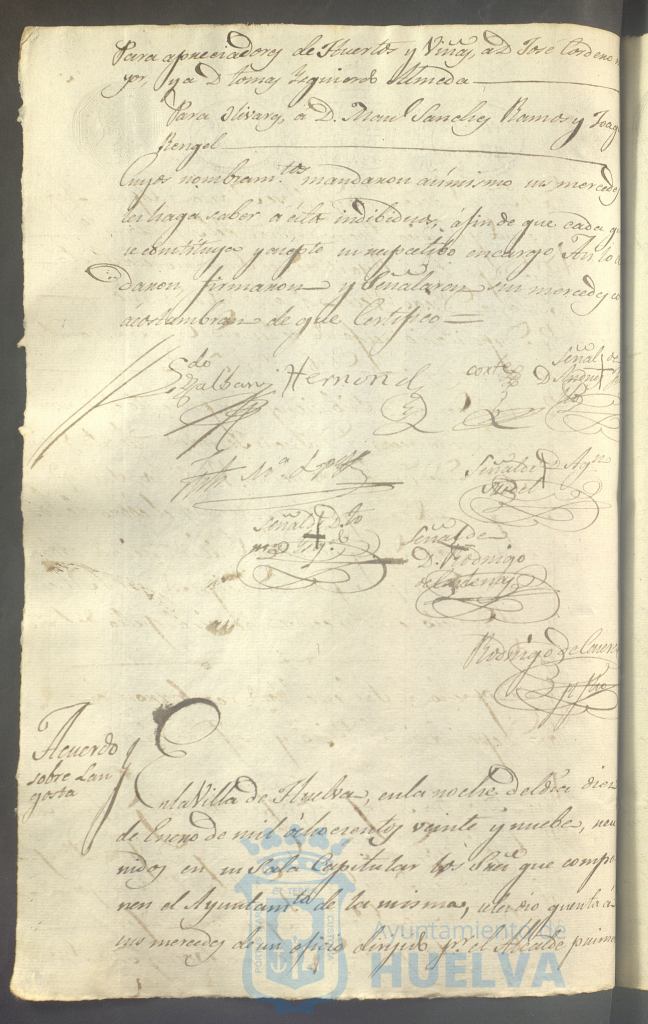 Para apreciadores de Huertos y Viñas, a D. Jose Cordero
yor, y a D. tomas Izquierdo Almeda
Para Olivares, a D. Man.l Sanches Ramos y Joaq
Rengel
Cuyos nombram.tos mandaron asimismo sus mercedes
les haga saber á estos indibiduos, áfin de que cada
se constituya y acepte su respectibo encargo: Asi lo
daron, firmaron y Señalaron sus mercedes
acostumbran de que Certifico =
Señal de
D. Andres
Señal de D. Ag.n
Señal de D. to
Señal de
D. Rodrigo
de Cardenas
Rodrigo de
Acuerdo
sobre Lan
gosta
En la Villa de Huelva, en la noche del dia diez
de Enero de mil ochocientos veinte y nuebe, reu
nidos en su Sala Capitular los Sres que compo
nen el Ayuntam.to de la misma, se dio quenta a
sus mercedes de un oficio dirijido p.r el Alcalde prime
Ayuntamiento de
HUELVA